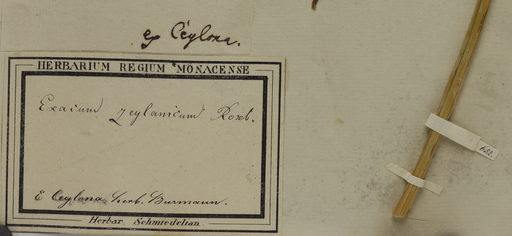 ex Ceylona.
HERBARIUM REGIUM MONACENSE
Exacum zeylanicum Roxb.
E Ceylona herb. Burmann.
Herbar. Schmiedelian.